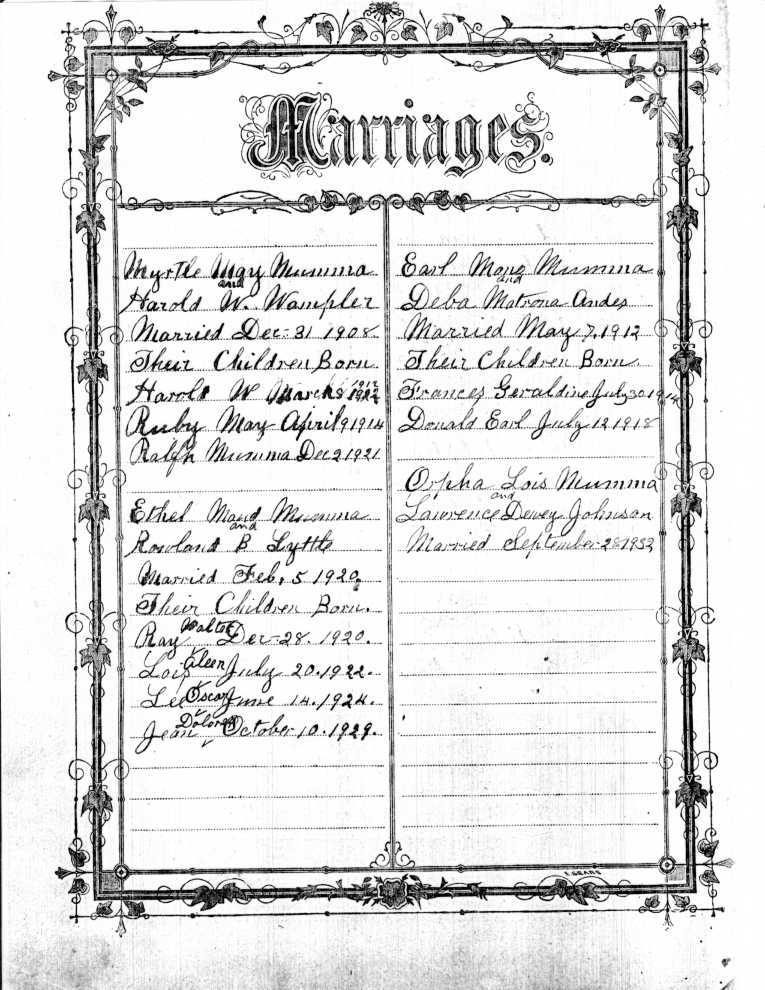 Marriages.
Myrtle May Mumma
and
Harold W. Wampler
Married Dec-31 1908
Their Children Born
Harold W March 8 1912
1912
Ruby May April 9 1914
Ralph Mumma Dec 2 1921
Ethel Maud Mumma
and
Rowland B Lyttle
Married Feb, 5 1920.
Their Children Born.
Ray Walter Dec-28. 1920.
Lois Aleen July 20.1922.
Lee Oscar June 14.1924.
Jean Dolores October 10.1929.
Earl Mumma
and
Deba Matrona Andes
Married May 7, 1912
Their Children Born.
Frances Geraldine July 30 1914
Donald Earl July 12 1918
Orpha Lois Mumma
and
Lawrence Dewey Johnson
Married September-28 1932